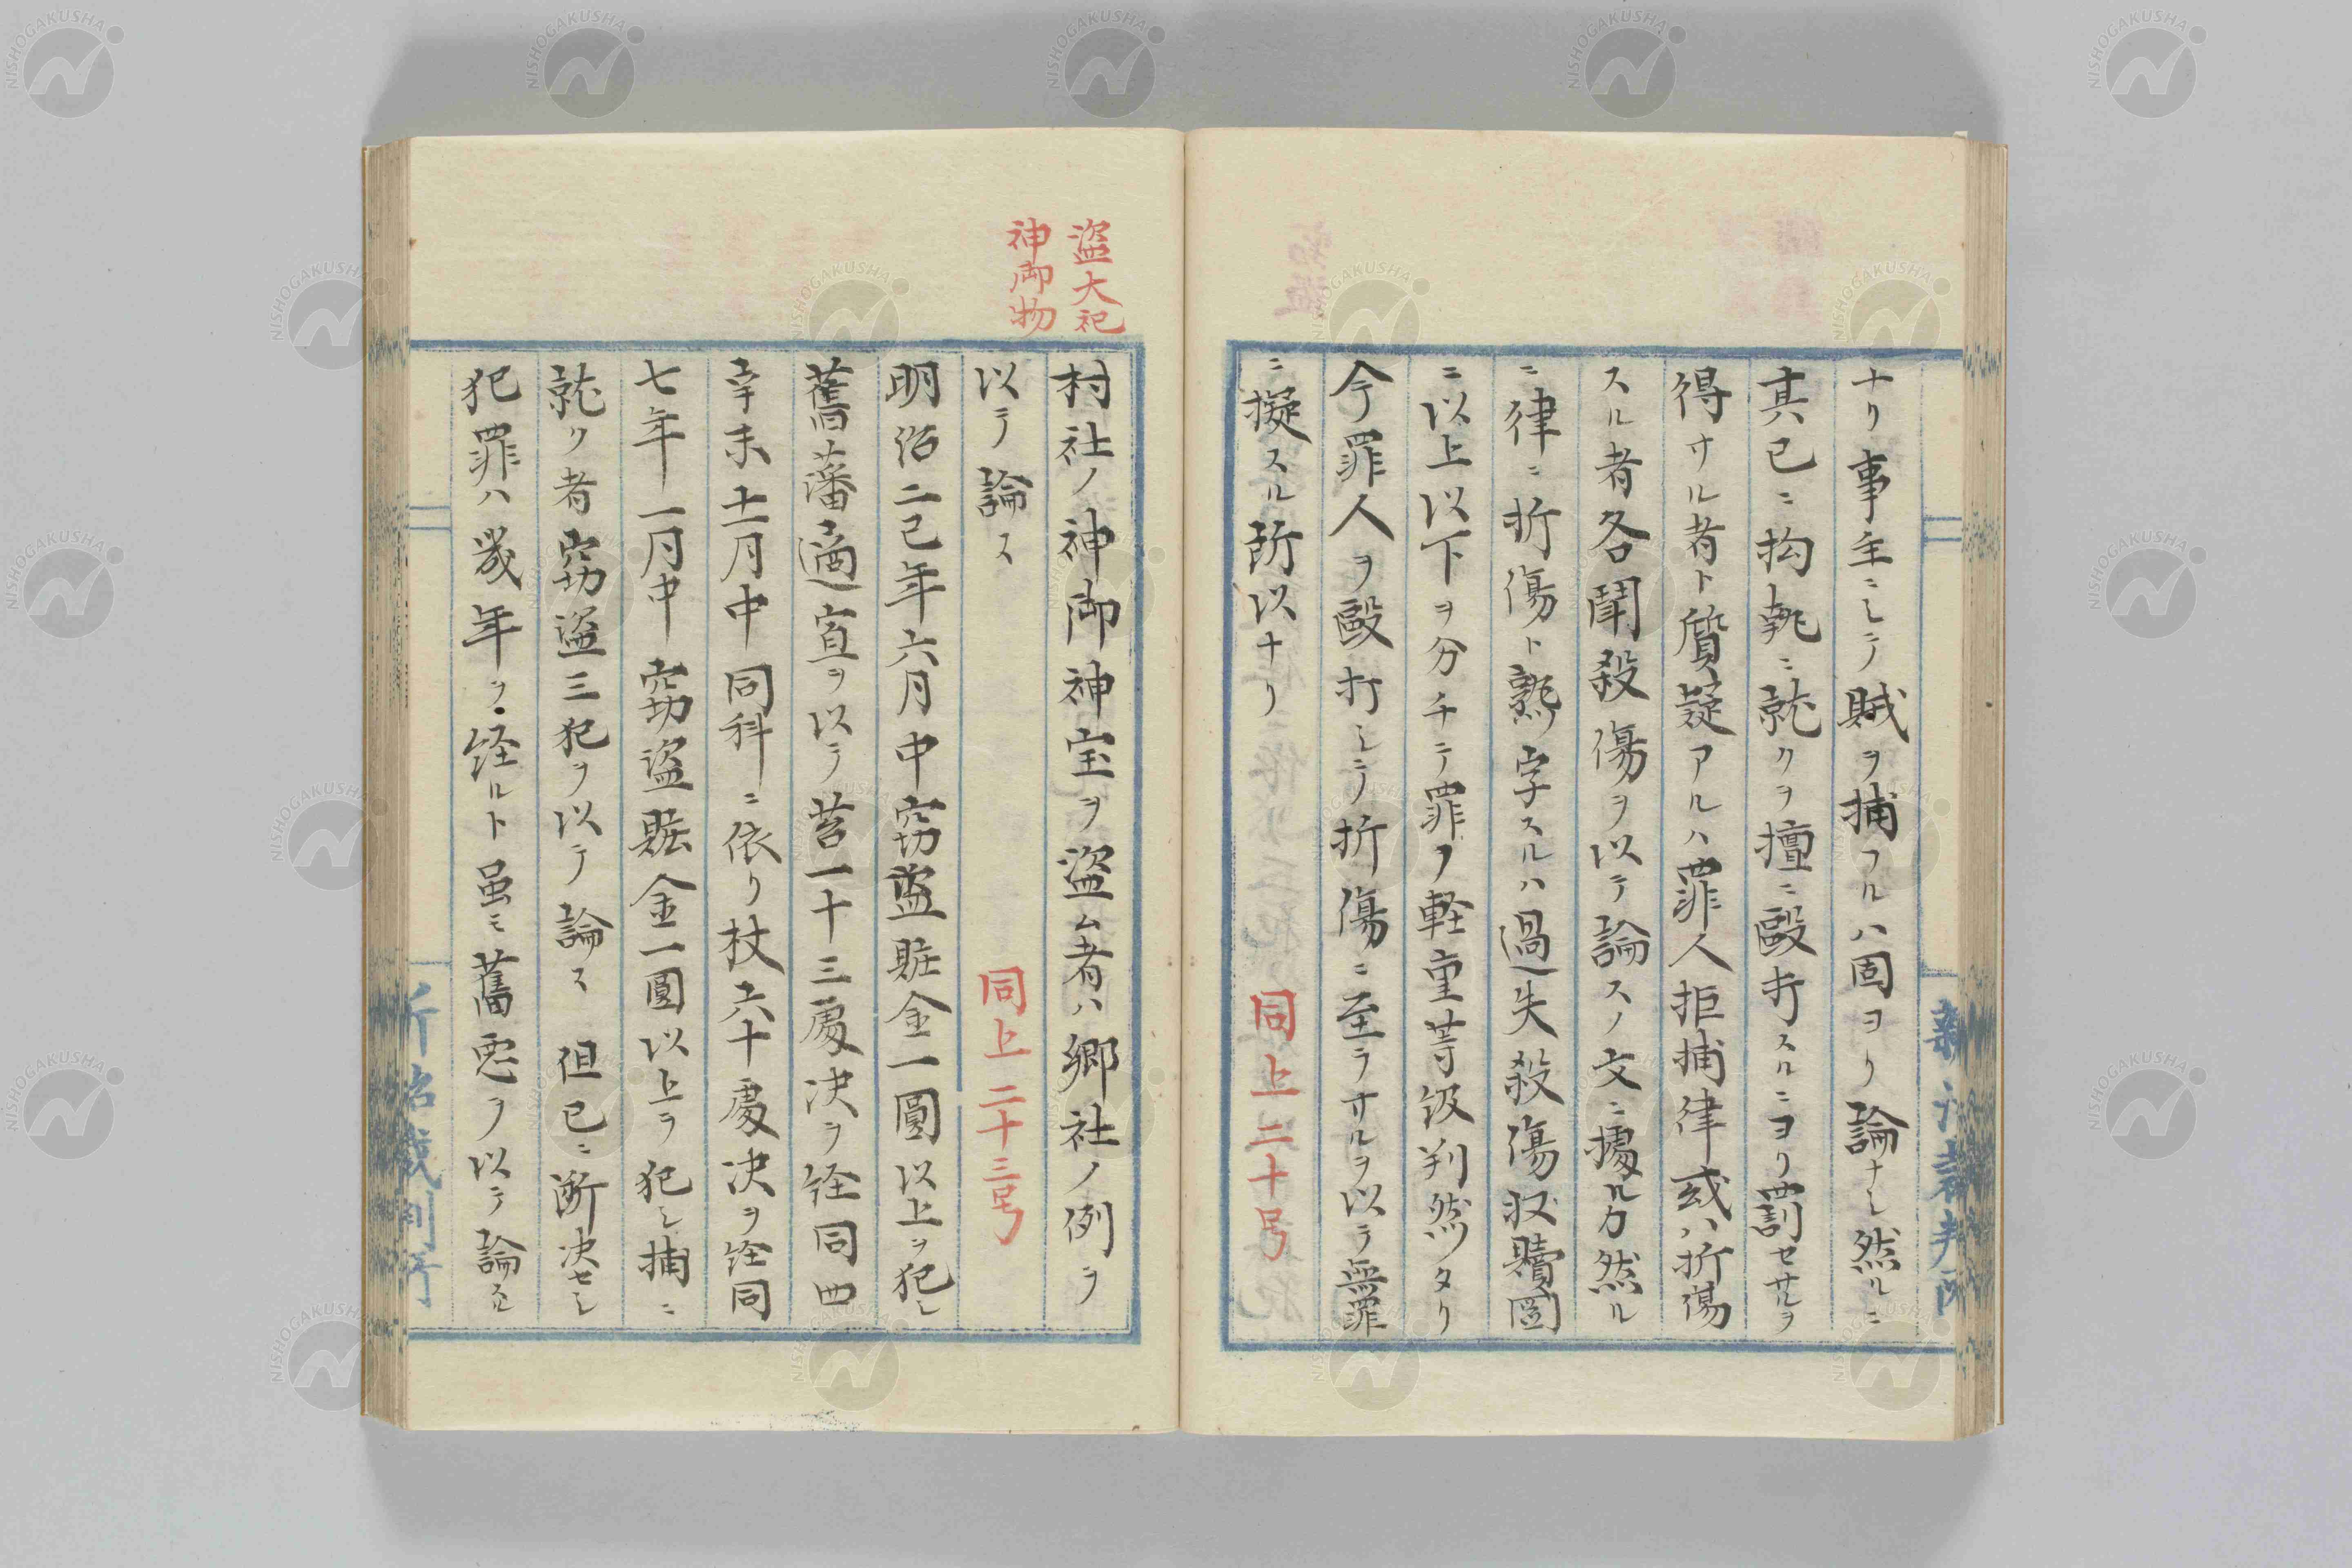 ナリ事主ニシテ賊ヲ捕フルハ固ヨリ論ナシ然ルニ
其已ニ拘執ニ就クヲ擅ニ毆打スルニヨリ罰セサルヲ
得サル者ト質疑アルハ罪人拒捕律或ハ折傷
スル者各鬪殺傷ヲ以テ論スノ文ニ據ルカ然ル
ニ律ニ折傷ト熟字スルハ過失殺傷収贖圖
ニ以上以下ヲ分チテ罪ノ軽重等級判然タリ
今罪人ヲ毆打シテ折傷ニ至ラサルヲ以テ無罪
ニ擬スル所以ナリ
同上二十号
盗大祀
神御物
村社ノ神御神宝ヲ盗ム者ハ郷社ノ例ヲ
以テ論ス
同上二十三号
明治二己年六月中窃盗賍金一圓以上ヲ犯シ
舊藩適宜ヲ以テ笞一十三處决ヲ経同四
辛未十一月中同科ニ依リ杖六十處决ヲ経同
七年一月中窃盗賍金一圓以上ヲ犯シ捕ニ
就ク者窃盗三犯ヲ以テ論ス但已ニ断决セシ
犯罪ハ幾年ヲ経ルト虽モ舊悪ヲ以テ論
NISHOGAKUSHA